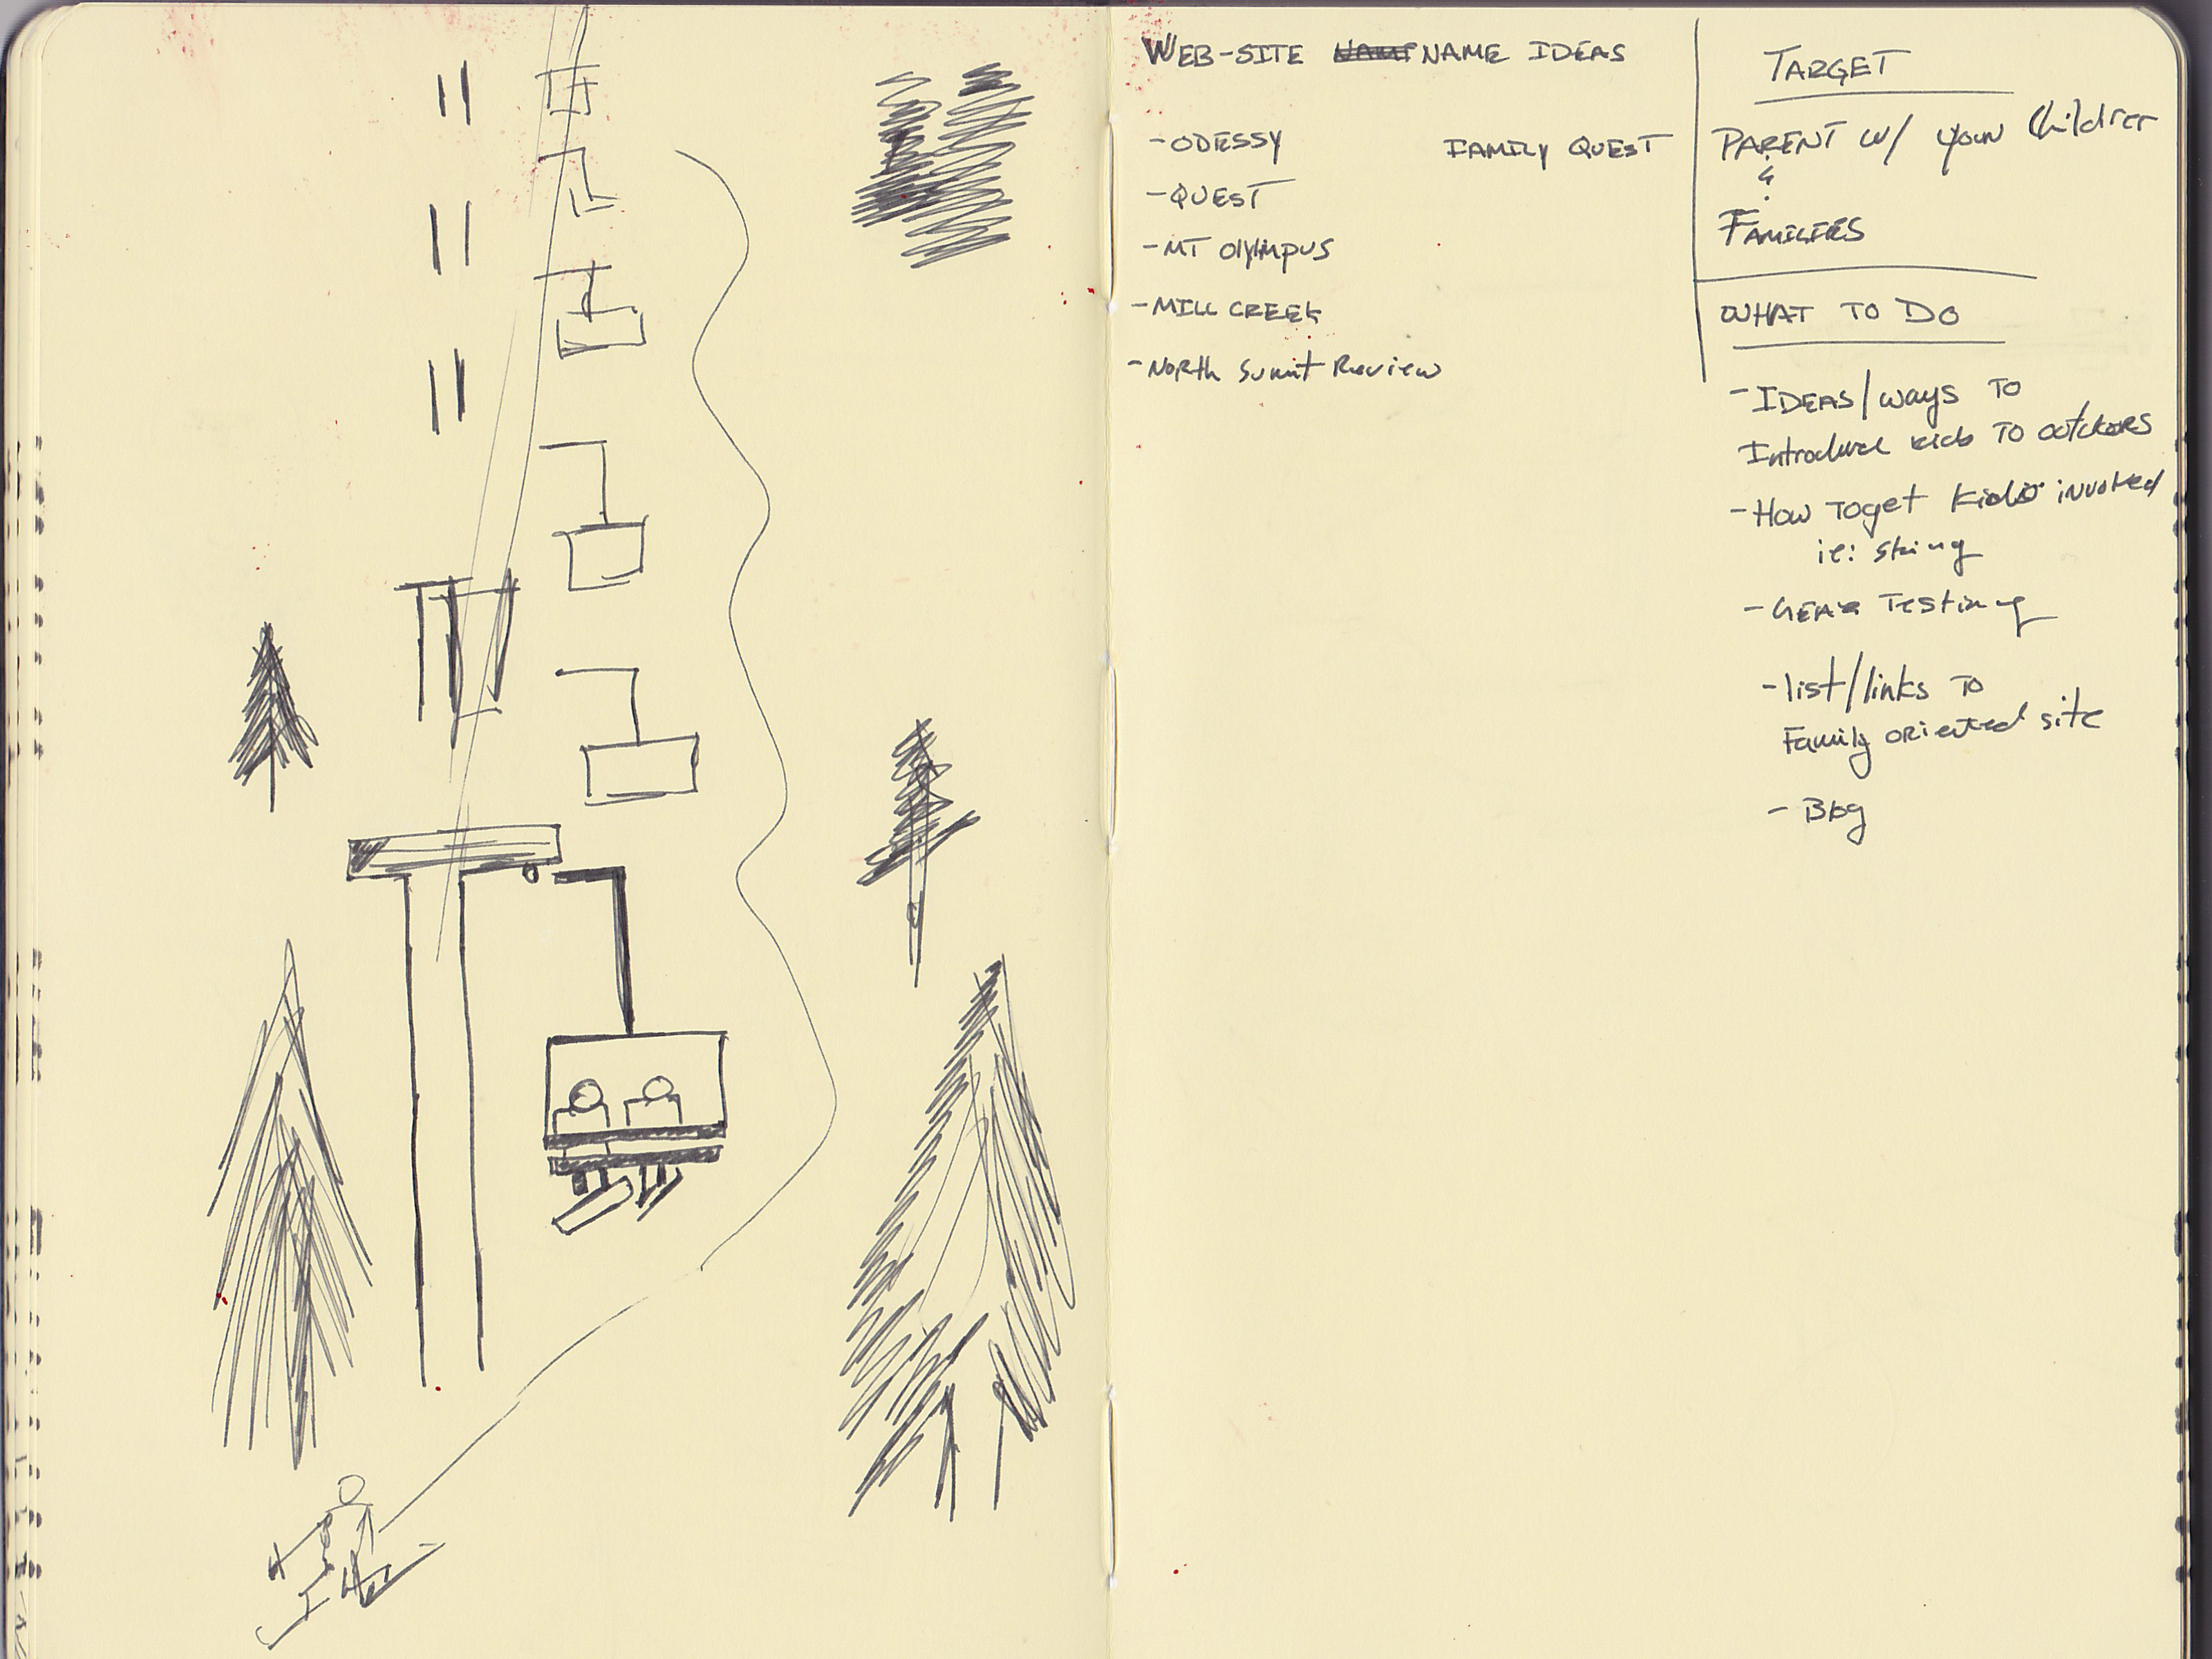 WEB-SITE NAME IDEAS
-ODESSY
FAMILY QUEST
-QUEST
-MT OlYMPUS
-MILL CREEK
-NORTH Sumit Review
TARGET
PARENT W/ youn Children
&
FAMILIERS
WHAT TO DO
-IDEAS/ways TO
Introduce kids TO outdoors
-How Toget Kids involved
ie: skiing
-GEAR Testing
-list/links TO
Family oriented site
- Blog